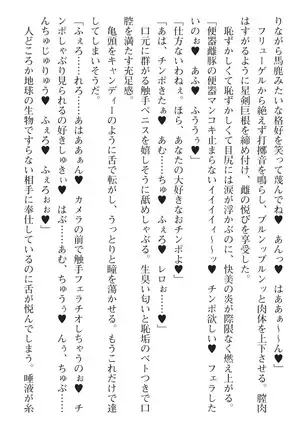 りながら馬鹿みたいな格好を笑って蔑んでね♥　あんっ♥　はああぁ〜〜ん♥」
フリューゲルから絶えず打擲音を鳴らし、ブルンップルンッと肉体を上下させる。膣肉
はすがるように星剣巨根を締め付け、雌の悦びを享受する。
恥ずかしくて恥ずかしくて目尻には涙が浮かぶのに、快美の炎が際限なく燃え上がる。
「便器雌豚の便器マンコキ止まらないイイイイィ〜〜♥　チンポ欲しい♥　フェラした
いのぉ♥　あふ♥　ふううぅ♥」
「仕方ないわねぇ。ほら、あなたの大好きなおチンポよ♥」
「あは、チンポきたぁ♥　あむ……ちゅ♥　ふぇろ♥　レロぉ……♥」
口元に群がる触手ペニスを嬉しそうに舐めしゃぶる。生臭い匂いと恥垢のベトつきで口
腔を満たす。
「ふぇろ……れろ……あはああぁん♥　カメラの前で触手フェラチオしちゃうのぉ♥　チ
ンポしゃぶり見られるの好きしゅきぃ♥　はぶ……あむ、ちゅうぅ♥　んぅ、ちゅぶ……
んちゅじゅりゅう♥　ふぇろ♥　ふぇろぉぉ♥」
亀頭をキャンディーのように舌で転がし、うっとりと瞳を蕩かせる。もうこれだけで達
してしまいそうだ。
人どころか地球の生物ですらない相手に奉仕しているのに舌が悦んでしまう。唾液が糸